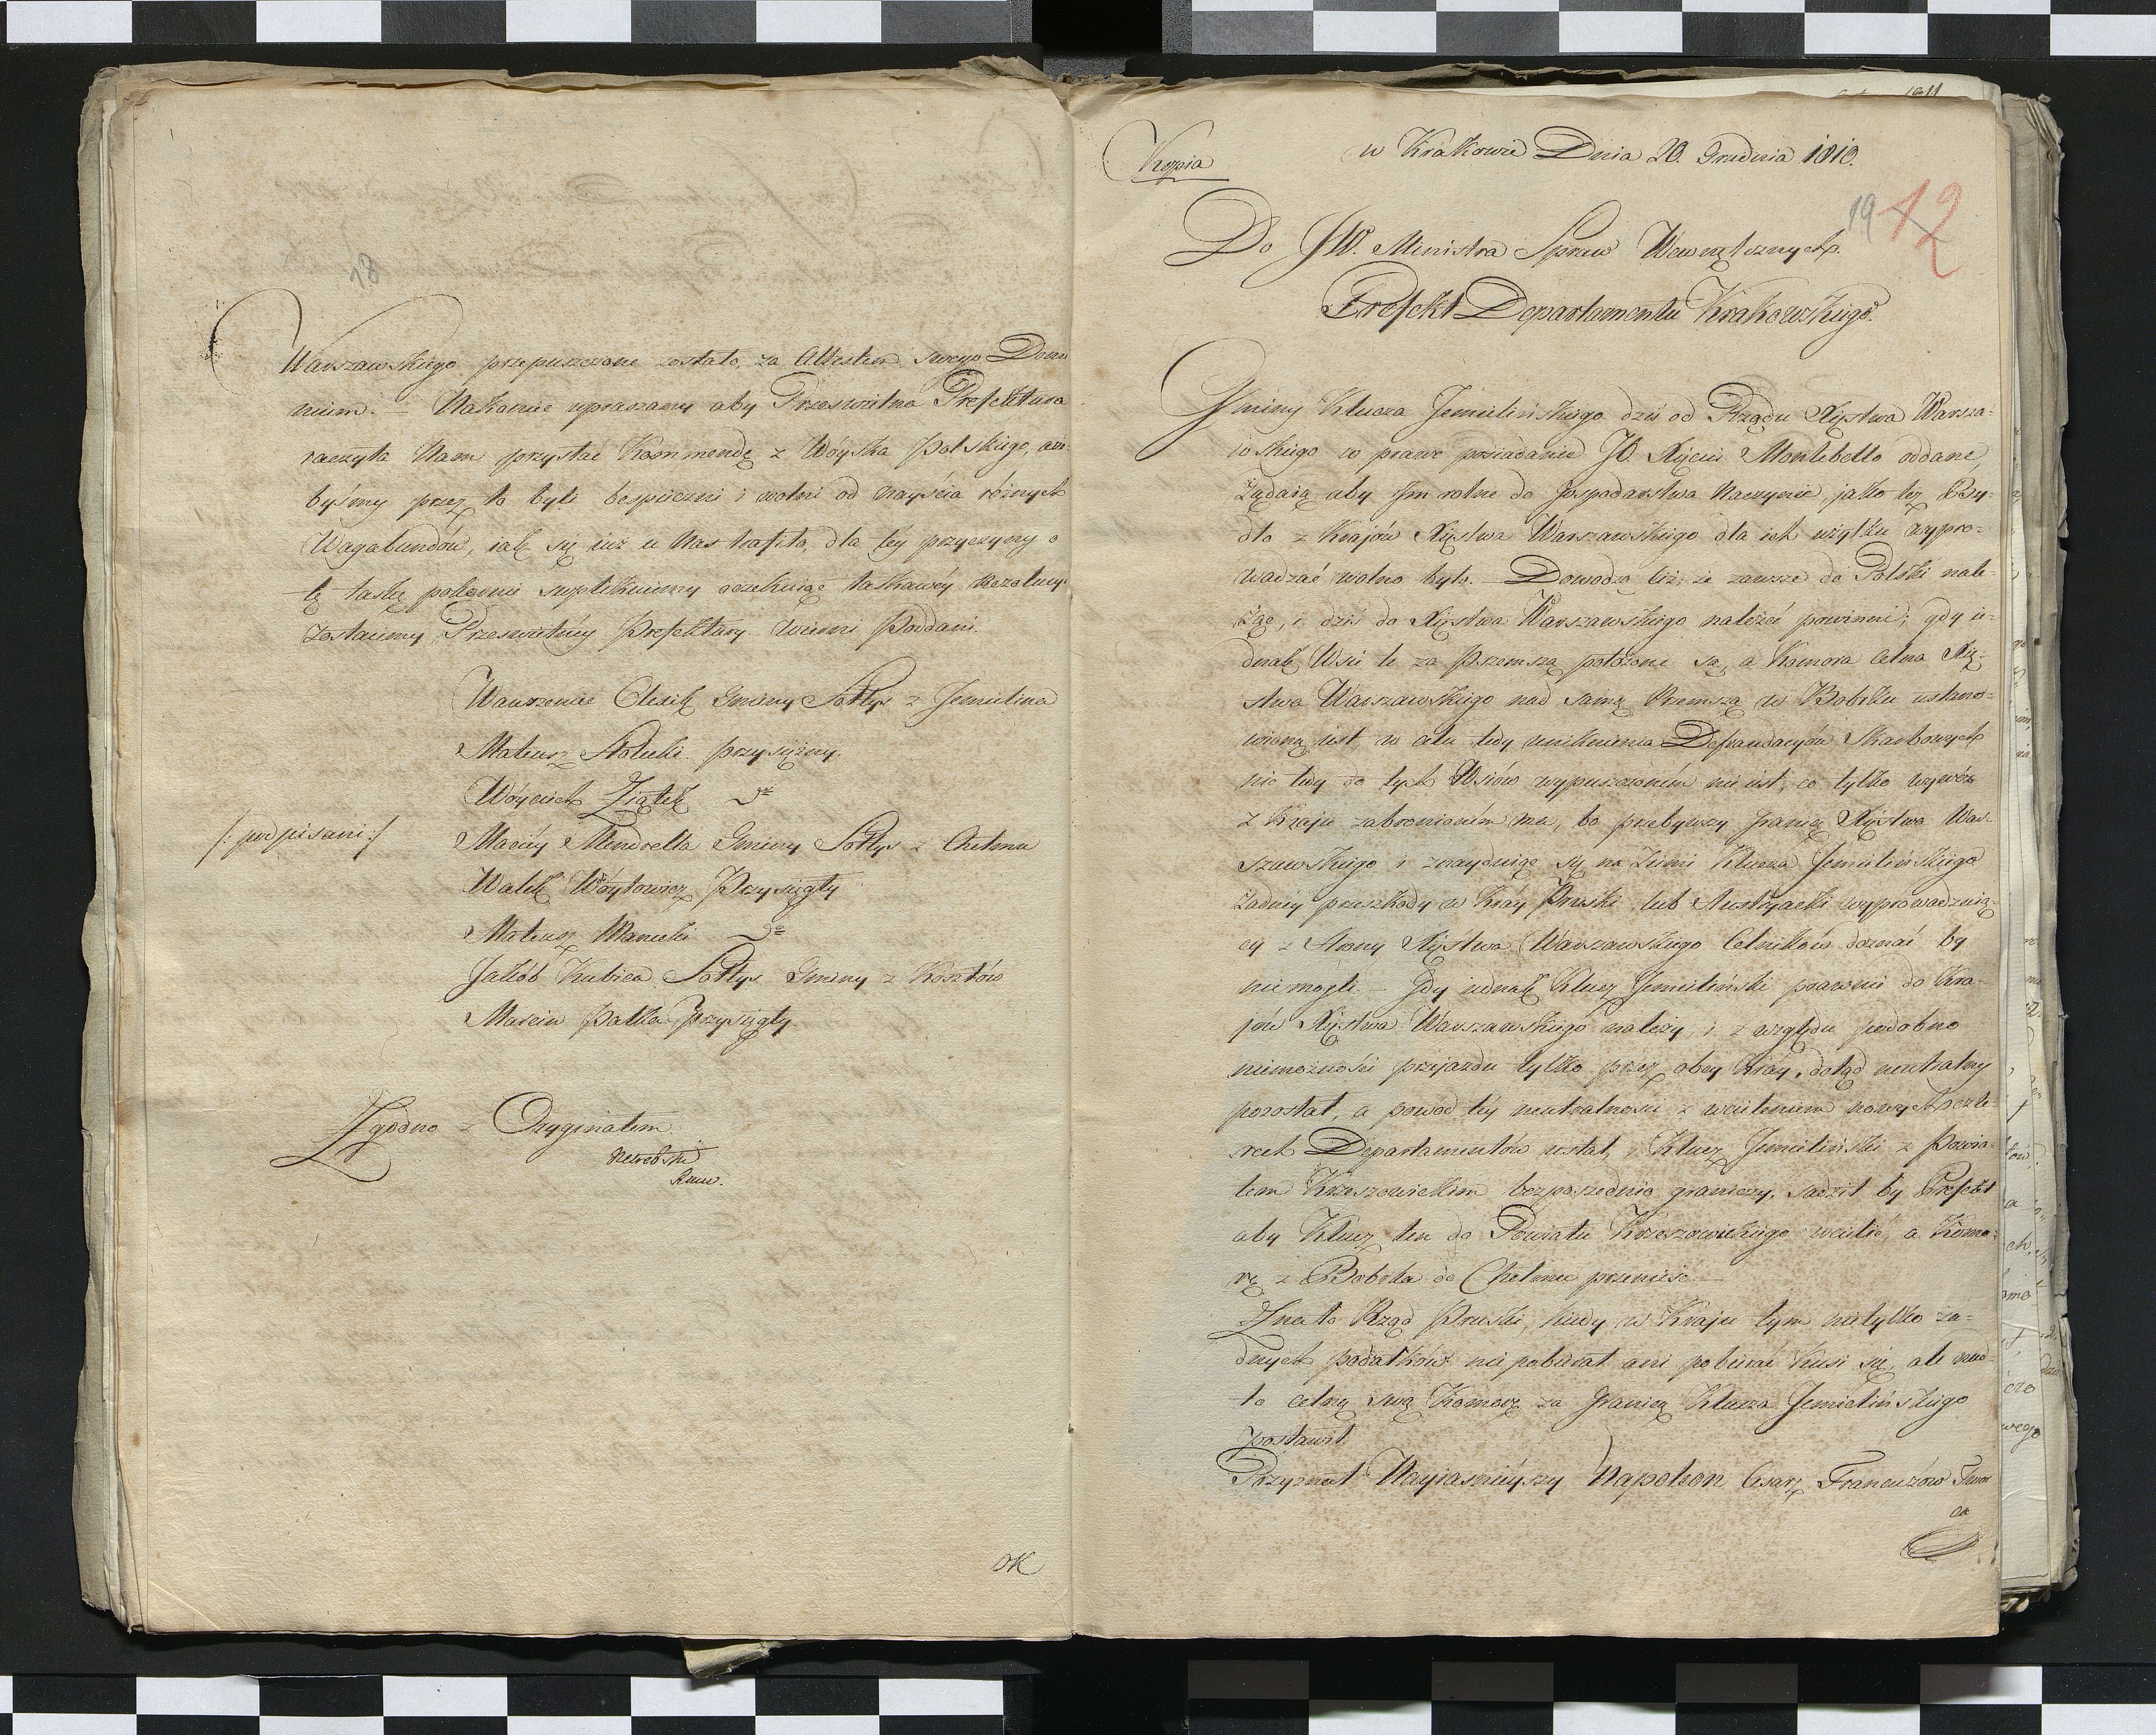 18
Warszawskiego przepuszczone zostało, za Attestem swego Domi
nium. — Nakoniec upraszamy aby Prześwietna Prefektura
raczyła Nam przysłać Kommendę z Wóyska Polskiego, aże
byśmy przez to byli bespieczni i wolni od nayścia różnych
Wagabundów, iak się iuż u Nas trafiło, dla tey przyczyny o
tę łaskę pokornie suplikuiemy oczekuiąc łaskawéy Rezolucyi
Zostaiemy Prześwietnéy Prefektury wierni Poddani.
Wawrzeniec Olesik Gminy Sołtys z Jemielina
Mateusz Stolecki przysiężny.
Wóyciech Ziątek do
/: podpisani :/ Maciéy Mendrella Gminy Sołtys z Chełmu
Walek Wóytowicz Przysięgły
Mateusz Manecki do
Jakób Kubica Sołtys Gminy z Kosztów
Marcin Palka Przysięgły.
Zgodno z Oryginałem
Kopia
w Krakowie Dnia 20. Grudnia 1810.
19 12
Do JW. Ministra Spraw Wewnętrznych.
Prefekt Departamentu Krakowskiego.
Gminy Klucza Jemielińskiego dziś od Rządu Xięstwa Warsza-
wskiego w prawe posiadanie JO. Xięciu Montebello oddane,
żądaią aby Im rolne do gospodarstwa Naczynie, jako też By-
dło z Krajów Xięstwa Warszawskiego dla ich użytku wypro-
wadzać wolno było. — Dowodzą też, że zawsze do Polski nale-
żąc, i dziś do Xięstwa Warszawskiego należeć powinni; gdy ie-
dnak Wsie te za Przemszą położone są, a Komora Celna Xię-
stwa Warszawskiego nad samą Przemszą w Bobrku ustano-
wioną iest, w celu tedy uniknienia Defraudacyów Skarbowych
nic tedy do tych Wsiów wypuszczoném nie iest, co tylko wywóz
z Kraju zabronioném ma, bo przebywszy granicę Xięstwa War-
szawskiego i znayduiąc się na Ziemi Klucza Jemielińskiego
żadnéy przeszkody w Kráy Pruski lub Austryacki wyprowadzaią-
cy z Strony Xięstwa Warszawskiego Celników doznać by
nie mogli. — Gdy iednak Klucz Jemieliński prawnie do Kra-
jów Xięstwa Warszawskiego należy, i z względu podobno
niemożności przejazdu tylko przez obcy Kráy, dotąd neutralny
pozostał, a powod téy neutralności z wcieleniem nowych czte-
rech Departamentów ustał, i Klucz Jemieliński z Powia-
tem Krzeszowickim bezpośrednio graniczy, sądził by Prefekt
aby Klucz ten do Powiatu Krzeszowickiego wcielić, a Komo-
rę z Bobrka do Chełmu przenieść. —
Zna to Rząd Pruski, kiedy w Kraju tym nietylko ża-
dnych podatków nie pobierał ani pobierać kusi się, ale nad-
to celną swą Komorę za granicą Klucza Jemielińskiego
postawił.
Przyznał Nayiaśnieyszy Napoleon Cesarz Francuzów